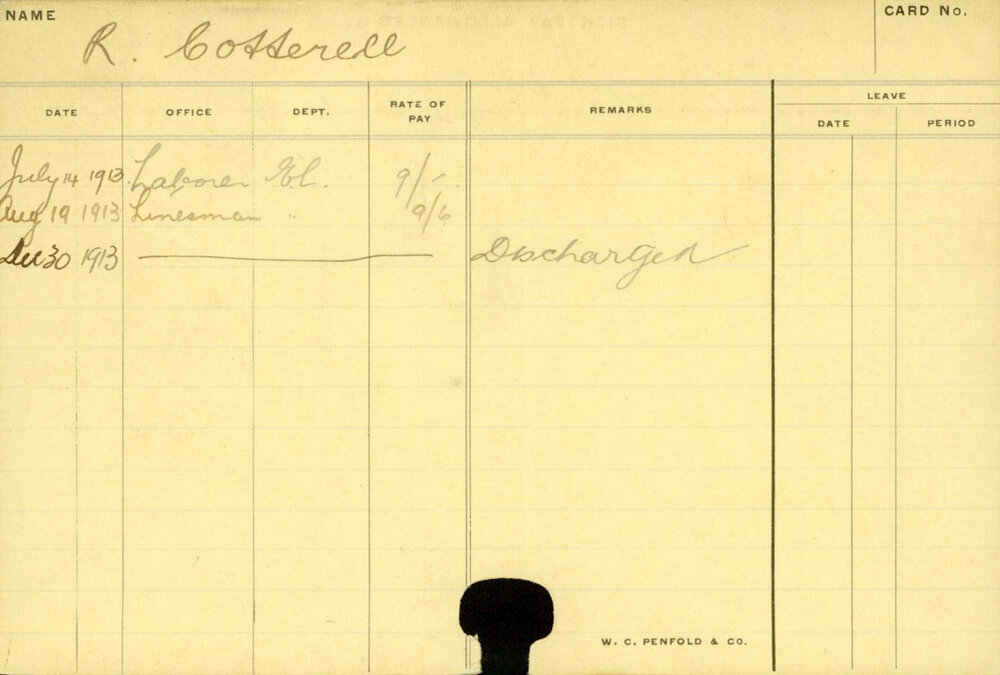 NAME
CARD No.
R. Cotterell
DATE OFFICE DEPT. RATE OF PAY REMARKS LEAVE
DATE PERIOD
July 14 1913 Laborer El. 9/-
Aug 19 1913 Linesman " 9/6
Dec 30 1913 Discharged
W. C. PENFOLD & CO.